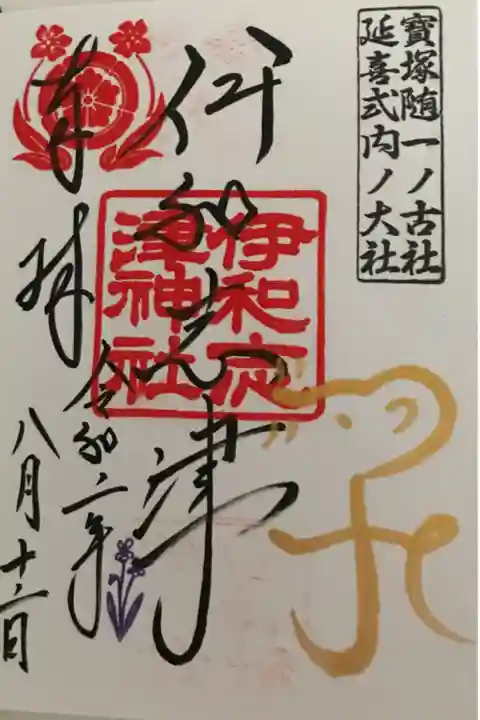 寶塚随一ノ古社
延喜式内ノ大社
伊和志津
伊和志津神社
奉拝
令和二年
八月十二日